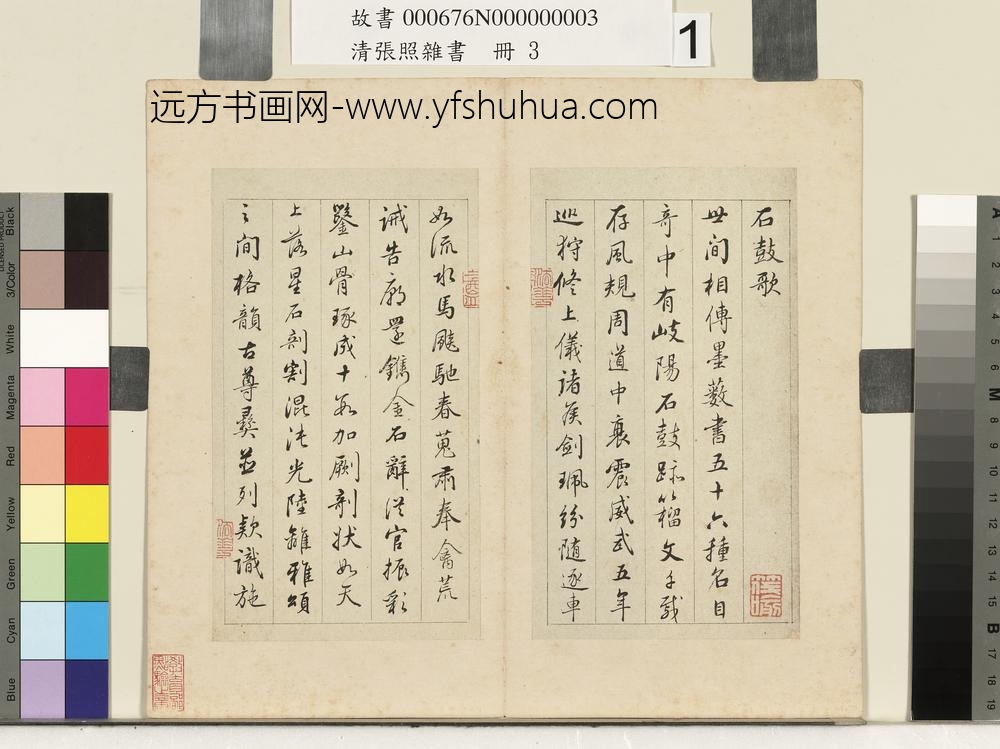 故書 000676N000000003
清張照雜書 冊 3
1
远方书画网-www.yfshuhua.com
石鼓歌
世間相傳墨薮書五十六種名目
奇中有岐陽石鼓跡籀文千載
存風規周道中衰震威武五年
巡狩修上儀諸侯劍珮紛隨逐車
如流水馬飈馳春蒐肅奉禽荒
誡告廟還鐫金石辭從官振彩
鑿山骨琢成十數加劂剞狀如天
上落星石剖割混沌光陸離雅頌
之間格韻古尊彝並列款識施
Black
3/Color
White
Magenta
Red
Yellow
Green
Cyan
Blue
A
1
2
3
4
5
6
M
8
9
10
11
12
13
14
15
B
17
18
19